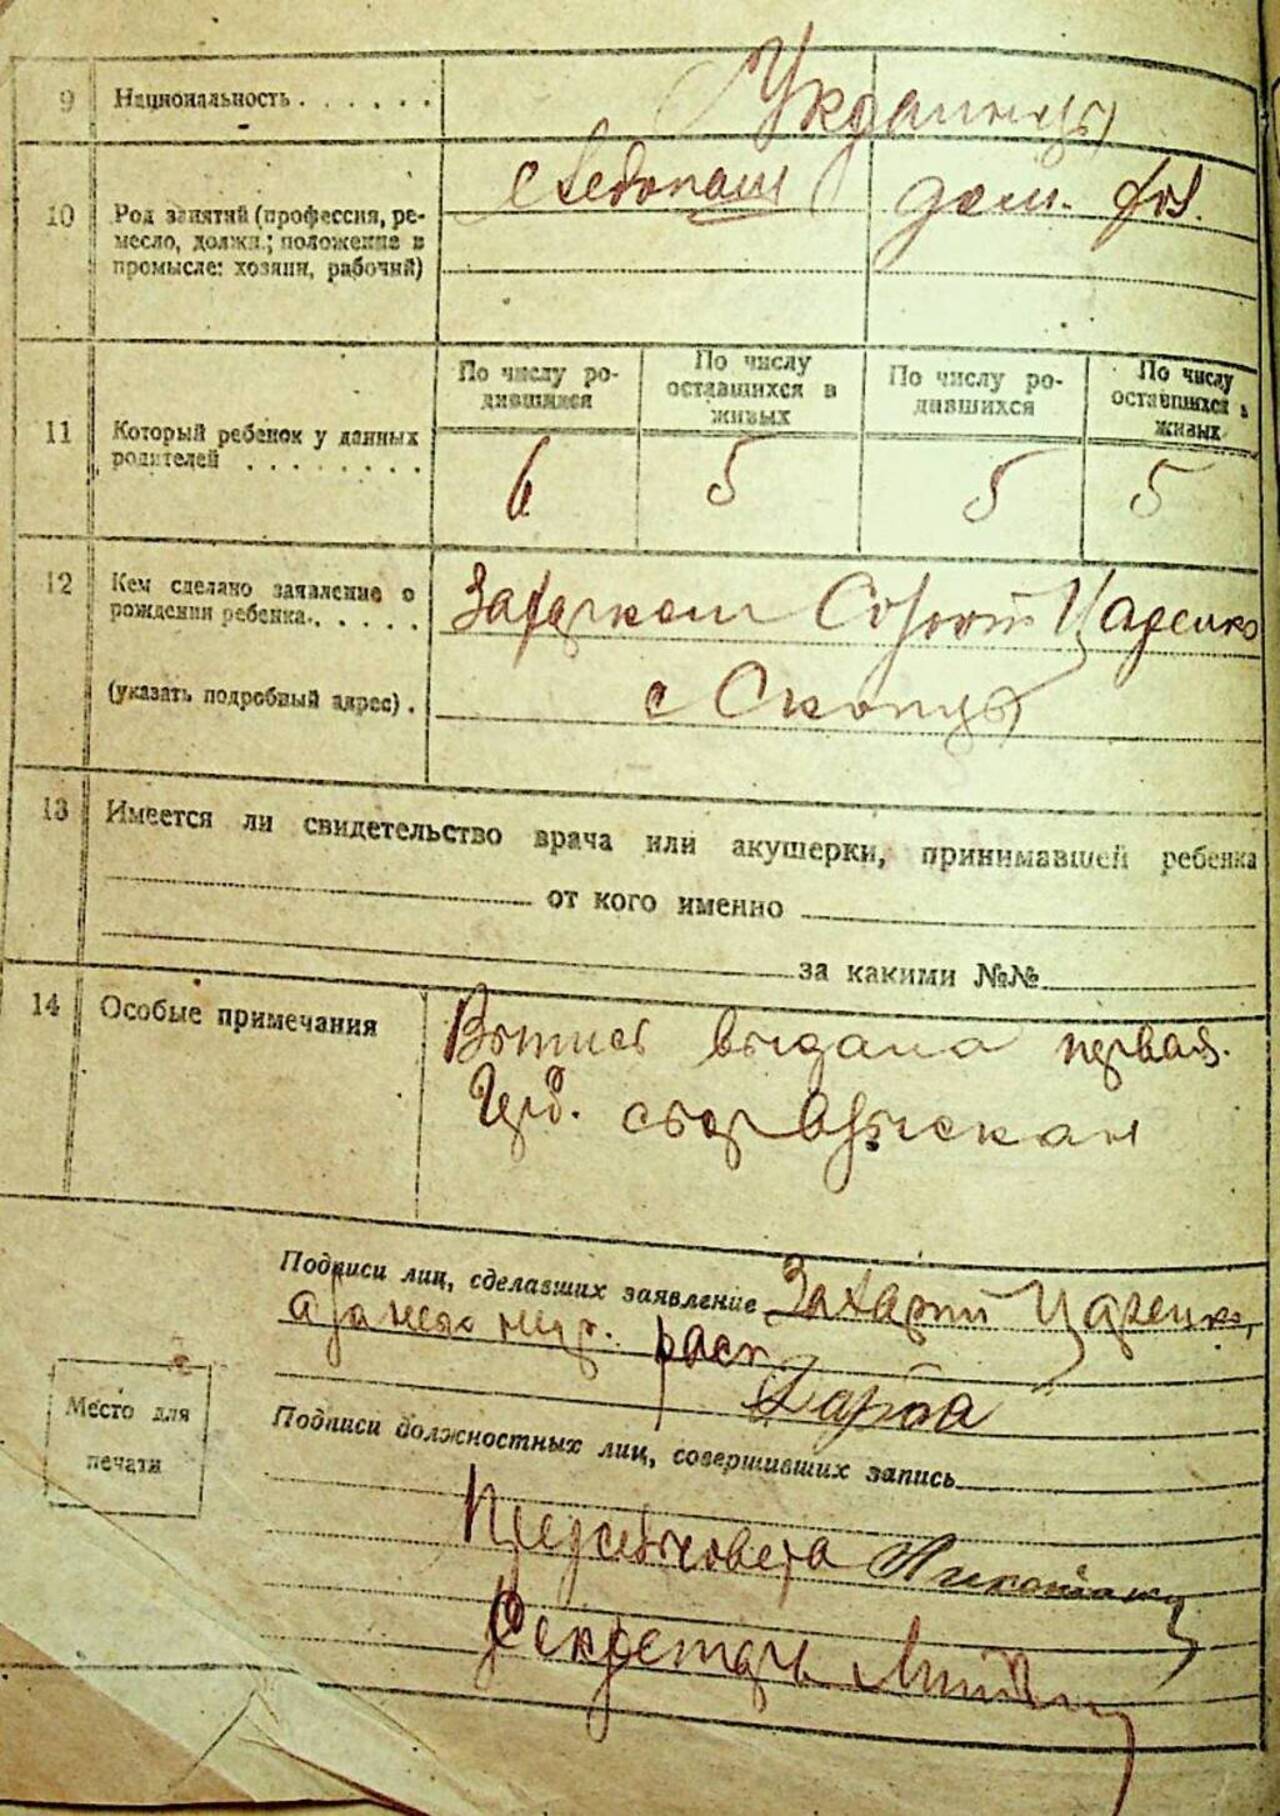 9 Национальность . . . . . . Украинцы
10 Род занятий (профессия, ре-
месло, должн.; положение в
промысле: хозяин, рабочий)
дом. хоз.
11 Который ребенок у данных
родителей . . . . . . . .
По числу ро-
дившихся
По числу
оставшихся в
живых
По числу ро-
дившихся
По числу
оставшихся в
живых
6 5 5 5
12 Кем сделано заявление о
рождении ребенка . . . . . .
Царенко
(указать подробный адрес) .
с Скопцы
13 Имеется ли свидетельство врача или акушерки, принимавшей ребенка
от кого именно
за какими №№
14 Особые примечания
выдана первая.
Подписи лиц, сделавших заявление Захарий Царенко,
расп
Место для
печати
Подписи должностных лиц, совершивших запись
Секретарь